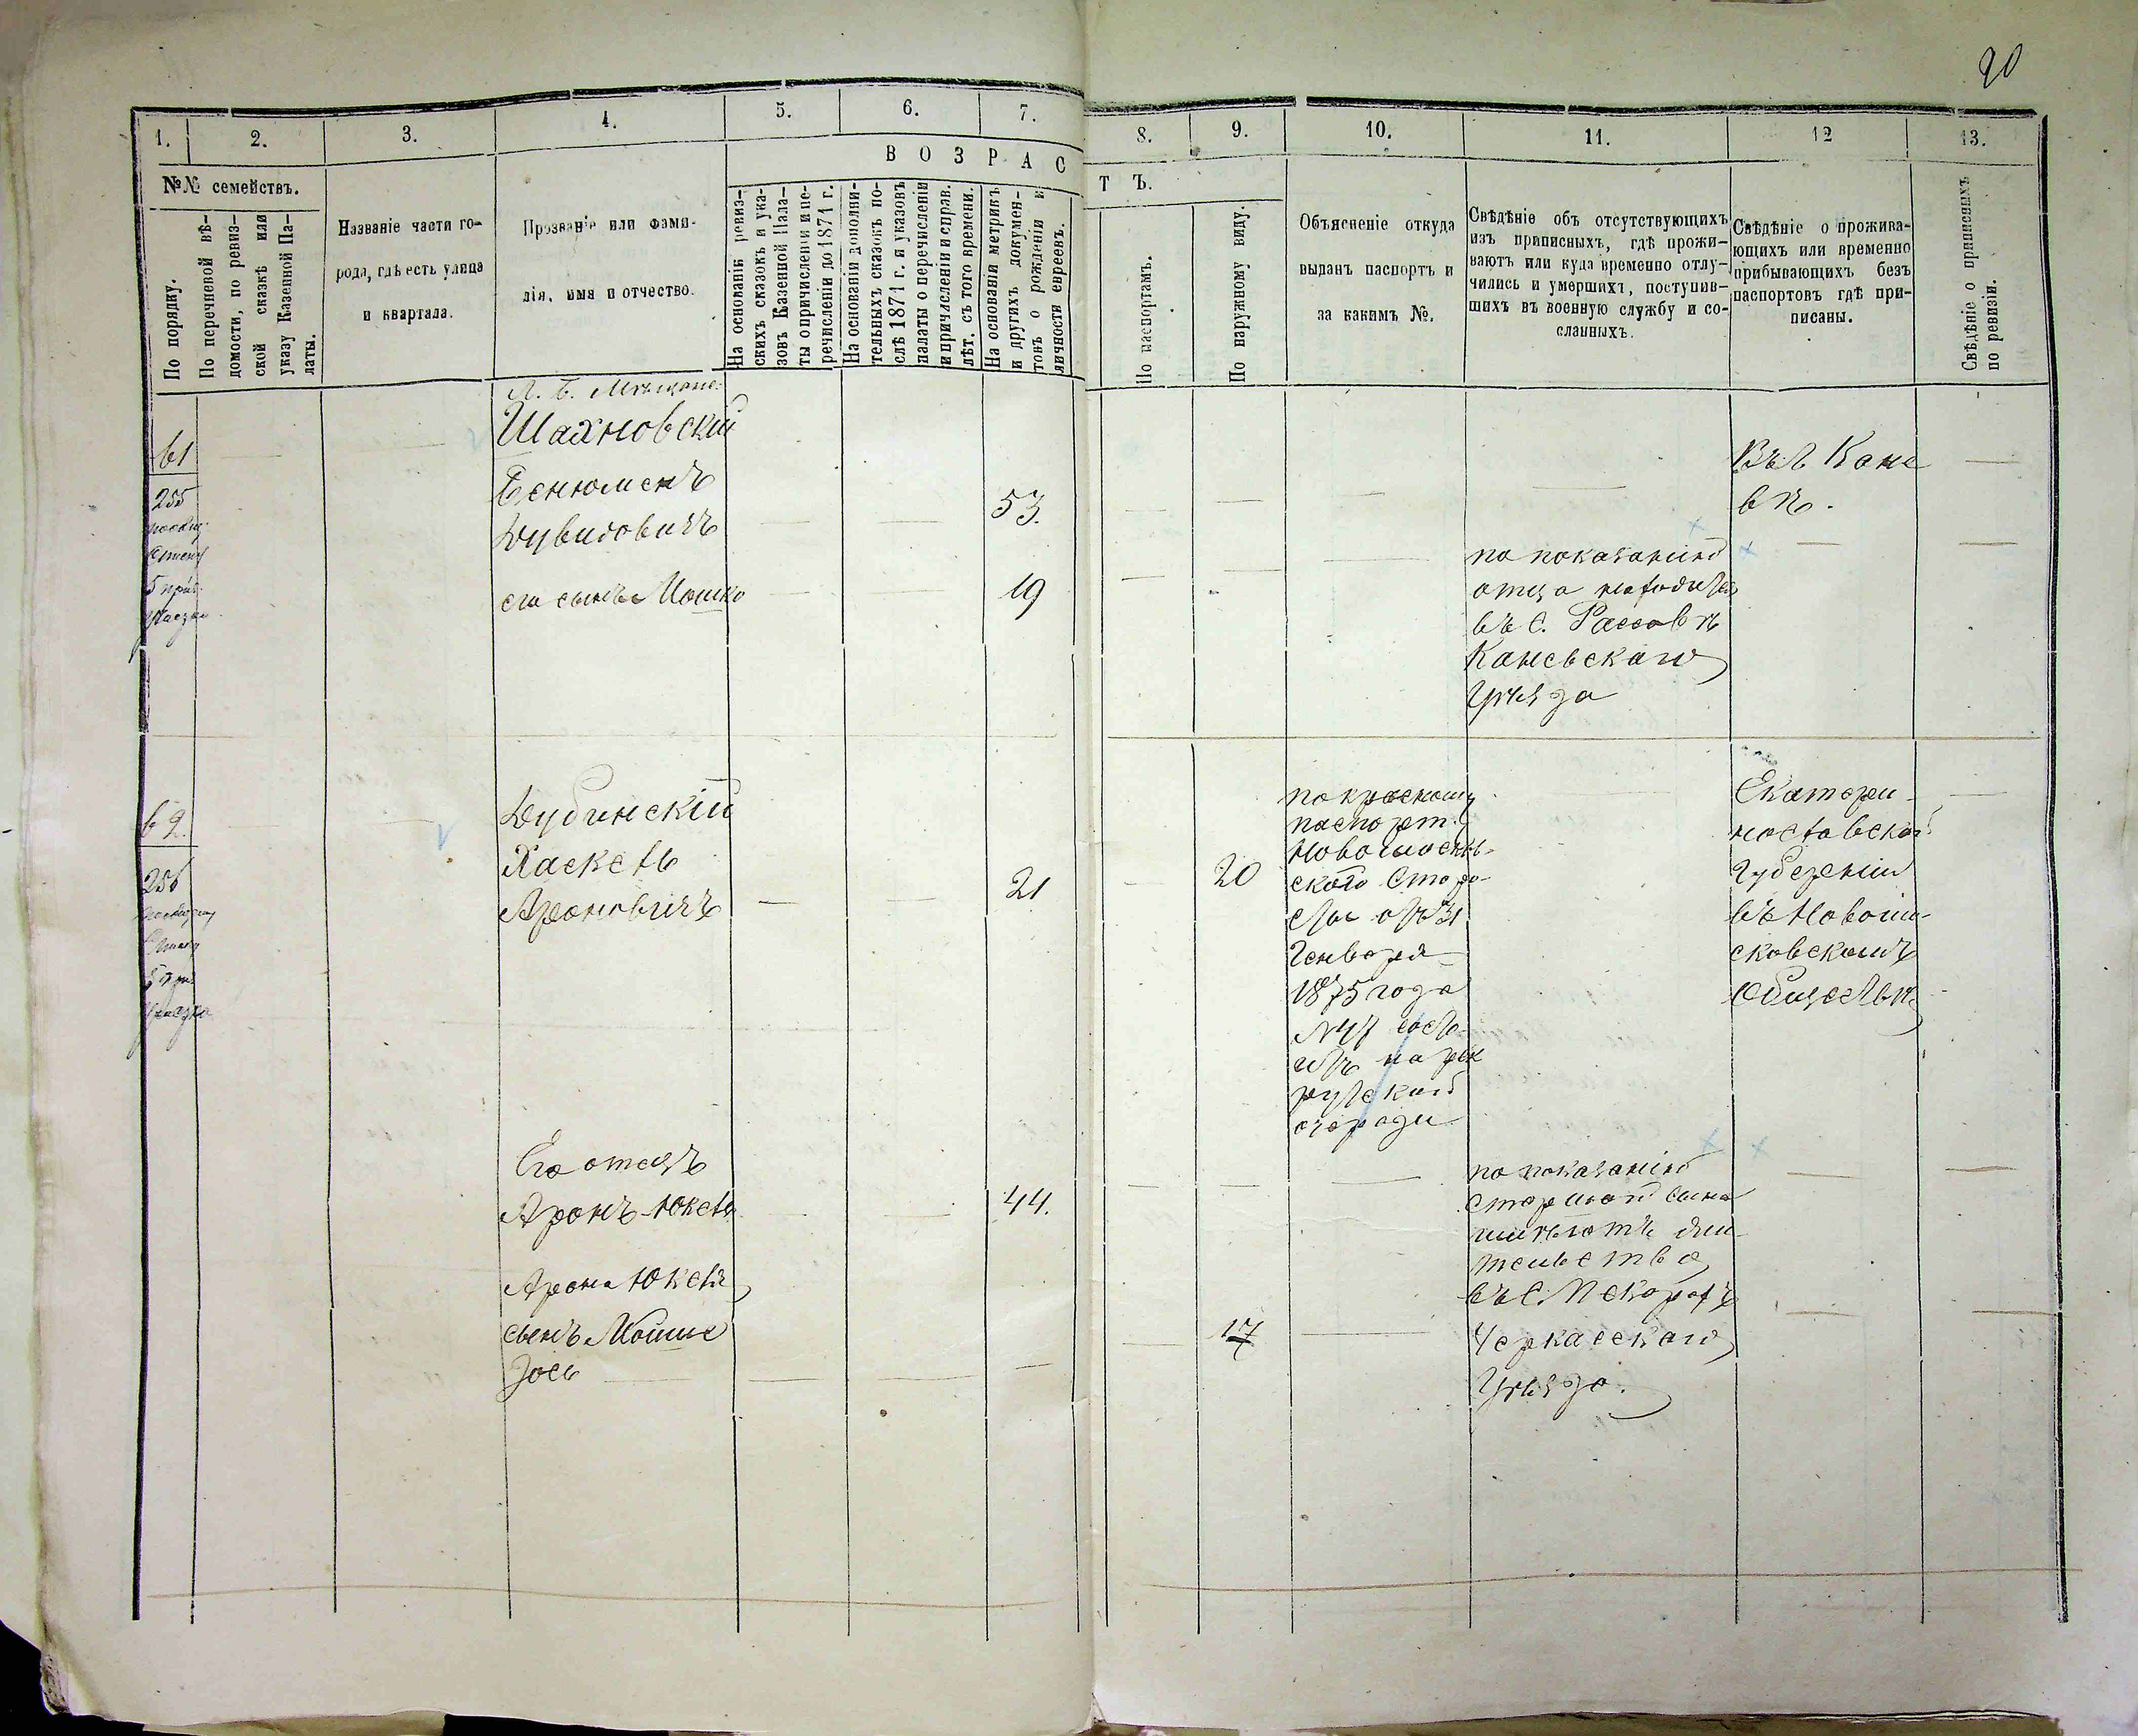 20
1.
2.
3.
4.
5.
6.
7.
8.
9.
10.
11.
12
13.
В О З Р А С
Т Ъ.
№№ семействъ.
По порядку.
По перечневой вѣ-
домости, по ревиз-
ской сказкѣ или
указу Казенной Па-
латы.
Названіе части го-
рода, гдѣ есть улица
и квартала.
Прозваніе или фами-
лія, имя и отчество.
На основаніи ревиз-
скихъ сказокъ и ука-
зовъ Казенной Пала-
ты о причисленіи и пе-
речисленіи до 1871 г.
На основаніи дополни-
тельныхъ сказокъ по-
слѣ 1871 г. и указовъ
палаты о перечисленіи
и причисленіи и справ.
лѣт. съ того времени.
На основаніи метрикъ
и другихъ докумен-
товъ о рожденіи и
личности евреевъ.
По паспортамъ.
По наружному виду.
Объясненіе откуда
выданъ паспортъ и
за какимъ №.
Свѣдѣніе объ отсутствующихъ
изъ приписныхъ, гдѣ прожи-
ваютъ или куда временно отлу-
чились и умершихъ, поступив-
шихъ въ военную службу и со-
сланныхъ.
Свѣдѣніе о прожива-
ющихъ или временно
прибывающихъ безъ
паспортовъ гдѣ при-
писаны.
Свѣдѣніе о приписныхъ
по ревизіи.
Мѣщане
61
Шахновскій
Бенюменъ
Дувидовичъ
53.
Кане
вѣ.
255
его сынъ Мошко
19
по показанію
отца находится
въ с.
Каневскаго
уѣзда
62.
Дубинскій
Хаскель
Ароновичъ
21
20
256
по красному
паспорт.
ского Старо
отъ 31
Генваря
1875 года
№47
на рек
рутской
очереди
Екатери-
нославской
Губерніи
въ Новомо-
сковскомъ
Обществѣ
Его отецъ
Аронъ-Юкель
44.
по показанію
старшого сына
имѣютъ жи-
тельство
въ с.
Черкасскаго
уѣзда.
Арона Юкеля
сынъ Мойше
Іось
17